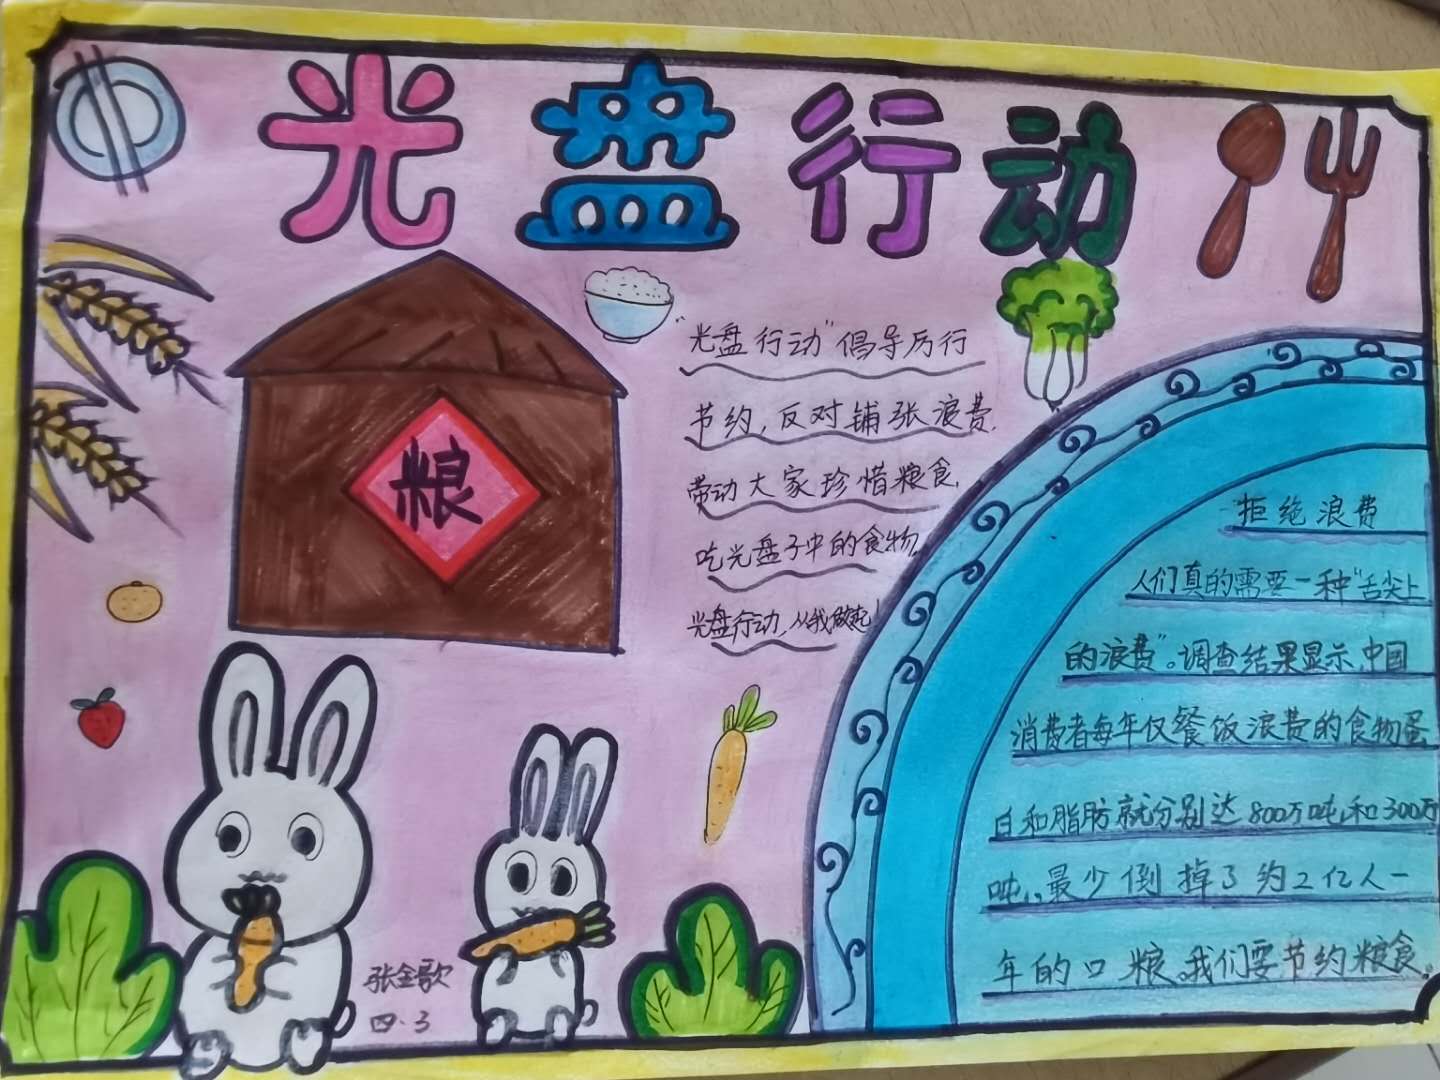 光盘行动
粮
"光盘行动"倡导厉行
节约,反对铺张浪费,
带动大家珍惜粮食,
吃光盘子中的食物,
光盘行动,从我做起!
拒绝浪费
人们真的需要一种"舌尖上
的浪费"。调查结果显示,中国
消费者每年仅餐饭浪费的食物蛋
白和脂肪就分别达800万吨,和300万
吨,,最少倒掉了约2亿人一
年的口粮。我们要节约粮食。
张金歌
四·3